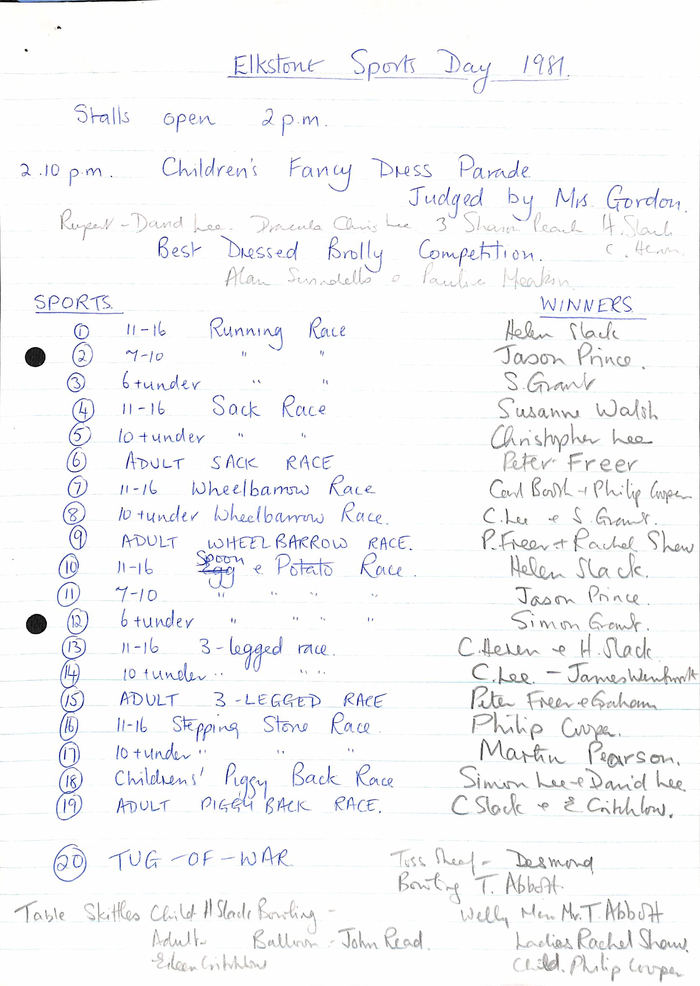 Elkstone Sports Day 1981.
Stalls open 2 p.m.
2.10 p.m. Children's Fancy Dress Parade
Judged by Mrs. Gordon.
Rupert - David Lee. Dracula Chris Lee 3 Sharon H. Slack
Best Dressed Brolly Competition. C. Heren
Alan & Pauline Meakin
SPORTS WINNERS
1 11-16 Running Race Helen Slack
2 7-10 " " Jason Prince.
3 6+under " " S. Grant
4 11-16 Sack Race Susanne Walsh
5 10+under " " Christopher Lee
6 ADULT SACK RACE Peter Freer
7 11-16 Wheelbarrow Race Carl Booth + Philip Cooper
8 10+under Wheelbarrow Race. C. Lee & S. Grant.
9 ADULT WHEELBARROW RACE. P. Freer + Rachel Shaw
10 11-16 Spoon Egg & Potato Race. Helen Slack.
11 7-10 " " " Jason Prince.
12 6+under " " " " Simon Grant.
13 11-16 3-legged race. C. Heren & H. Slack
14 10+under " " " C. Lee. - James Wentworth
15 ADULT 3-LEGGED RACE Peter Freer & Graham
16 11-16 Stepping Stone Race. Philip Cooper.
17 10+under " " " Martin Pearson.
18 Childrens' Piggy Back Race Simon Lee & David Lee.
19 ADULT PIGGY BACK RACE. C Slack & E. Critchlow.
20 TUG-OF-WAR Toss Sheaf - Desmond
Bowling T. Abbott.
Table Skittles Child H Slack Bowling - Welly Men Mr. T. Abbott
Adult Balloon - John Read. Ladies Rachel Shaw.
Eileen Critchlow Child. Philip Cooper